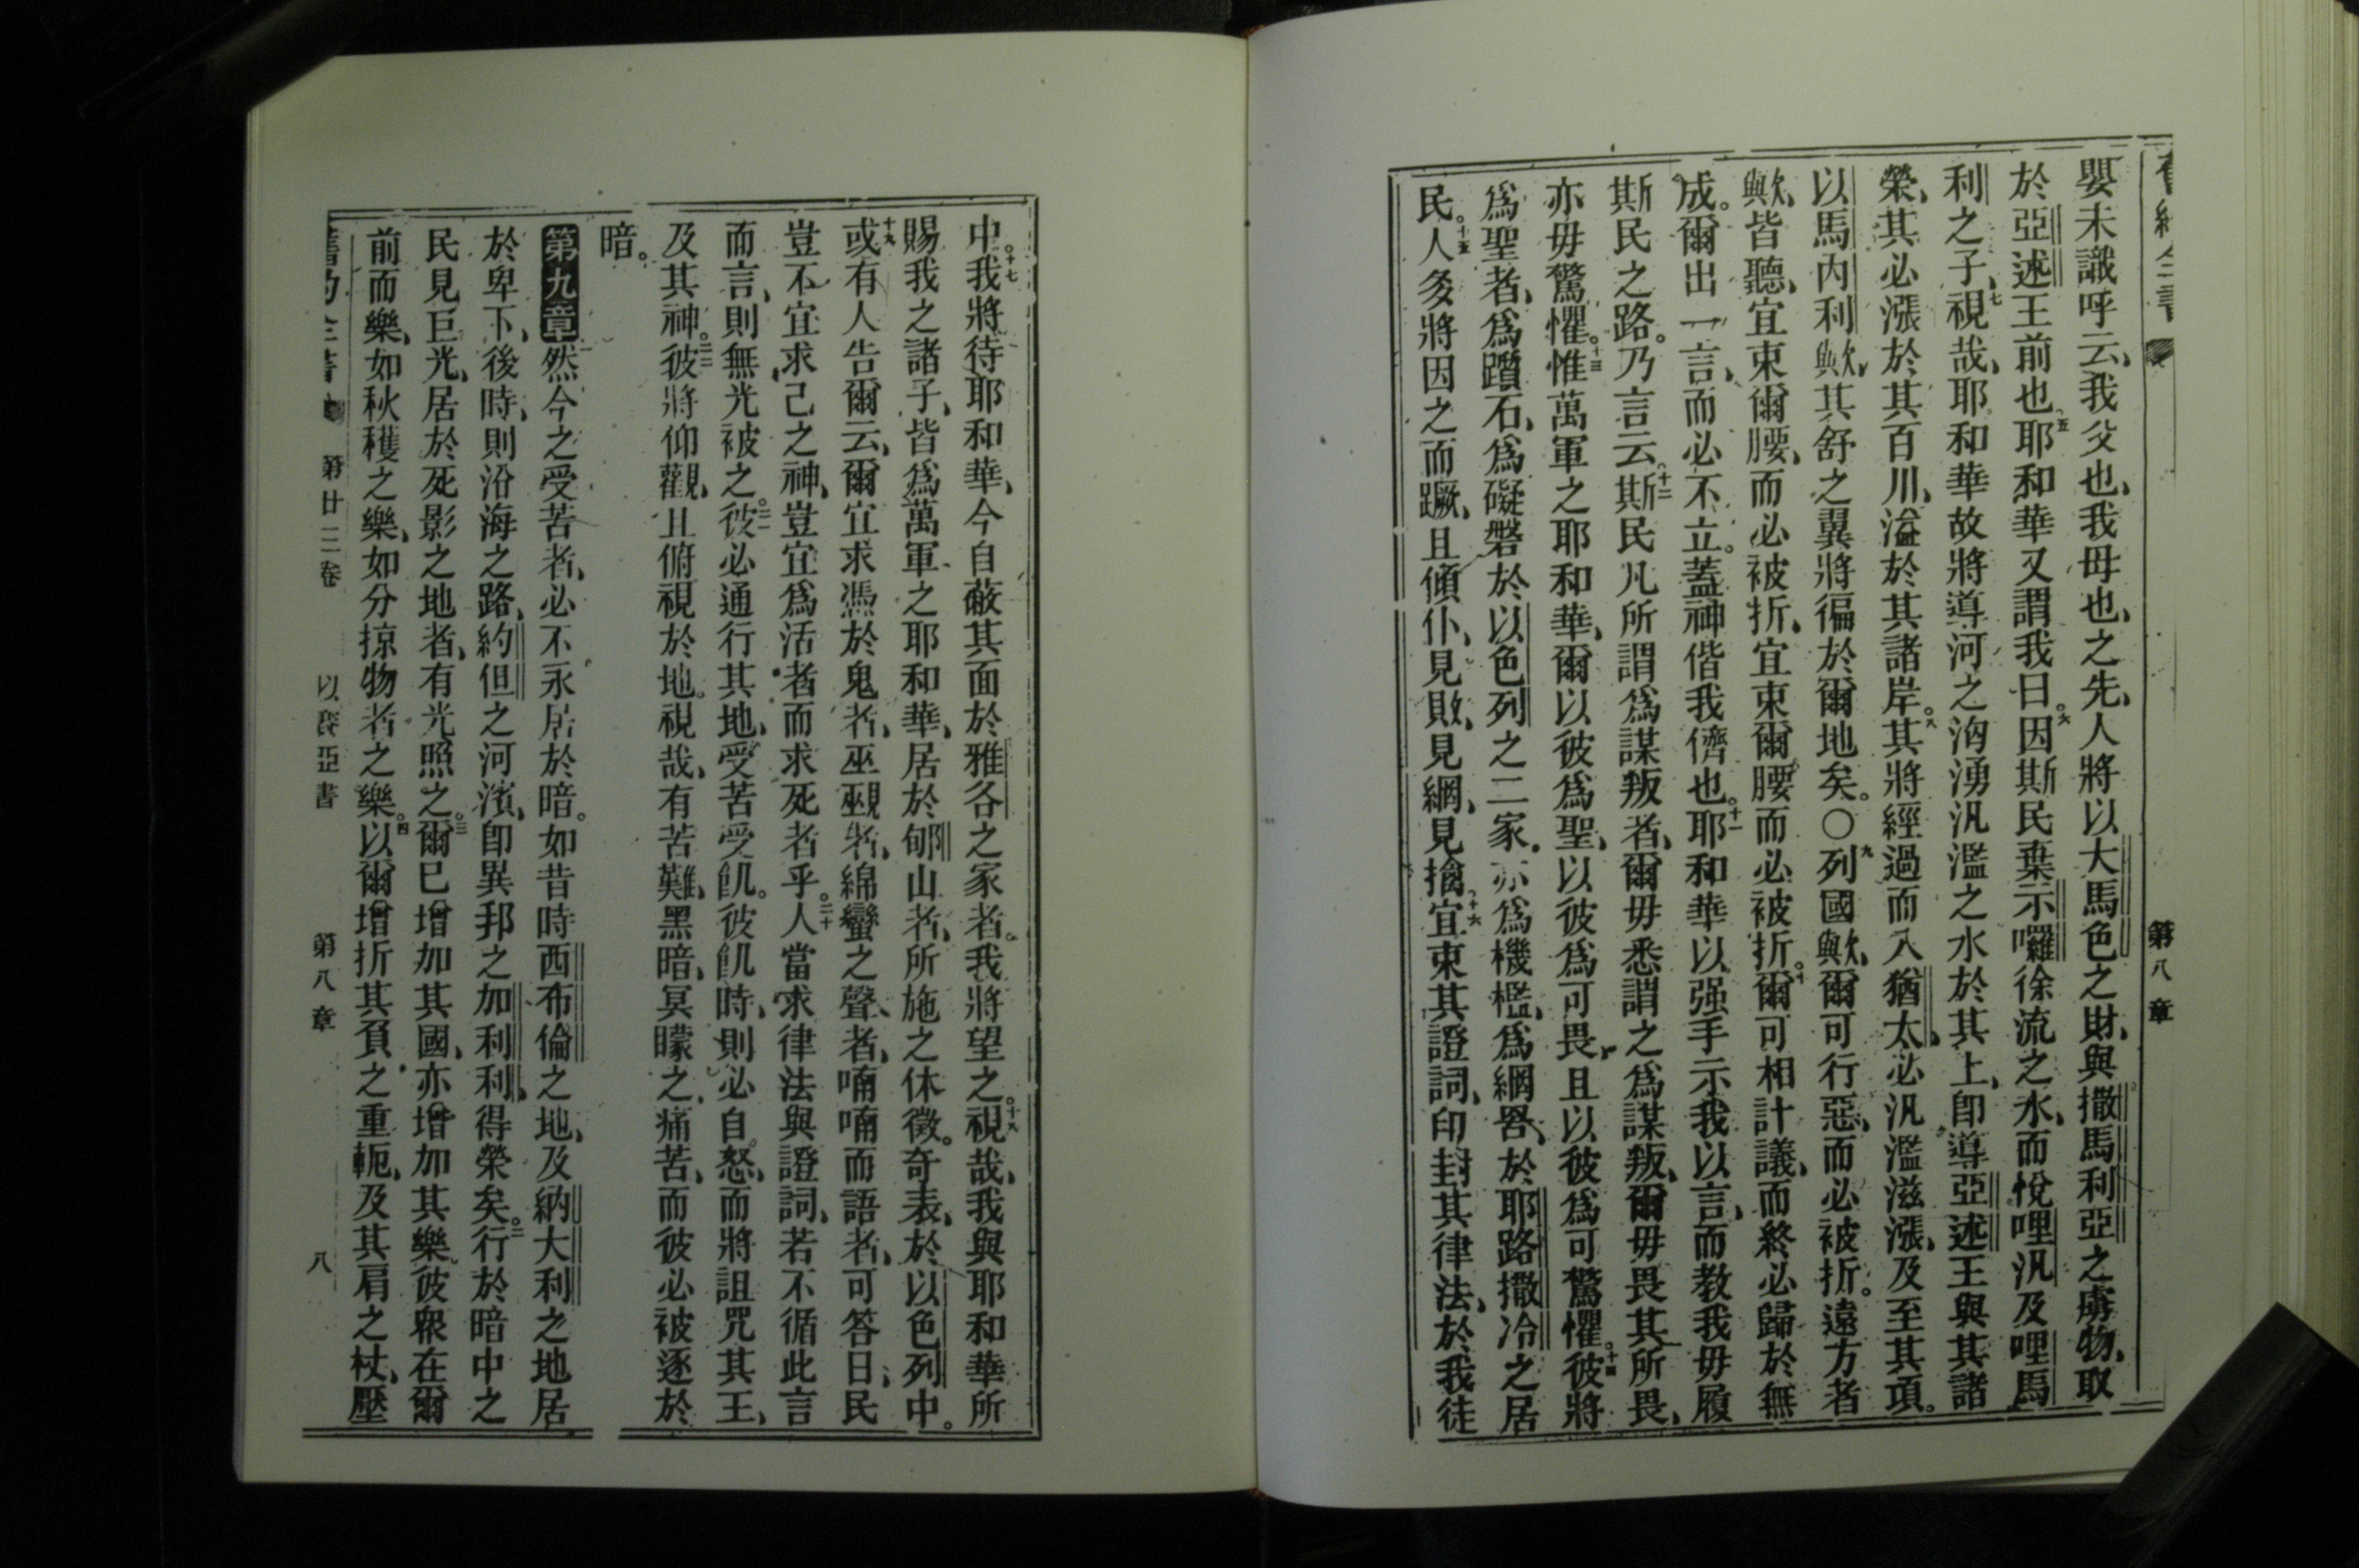 第八章
嬰未識呼云、我父也、我母也、之先、人將以大馬色之財、與撒馬利亞之虜物、取
於亞述王前也、五耶和華又謂我曰。六因斯民棄示囉徐流之水、而悅哩汎及哩馬
利之子、七視哉、耶和華故將導河之洶湧汎濫之水於其上、卽導亞述王與其諸
榮、其必漲於其百川、溢於其諸岸。八其將經過而入猶太、必汎濫滋漲、及至其項。
以馬內利歟、其舒之翼將徧於爾地矣。〇九列國歟、爾可行惡、而必被折。遠方者
歟、皆聽、宜束爾腰、而必被折、宜束爾腰而必被折。十爾可相計議、而終必歸於無
成。爾出一言、而必不立。蓋神偕我儕也。十一耶和華以强手示我以言、而教我毋履
斯民之路。乃言云。十二斯民凡所謂爲謀叛者、爾毋悉謂之爲謀叛、爾毋畏其所畏、
亦毋驚懼。十三惟萬軍之耶和華、爾以彼爲聖、以彼爲可畏、且以彼爲可驚懼。十四彼將
爲聖者、爲躓石、爲礙磐於以色列之二家、亦爲機檻、爲綱罟、於耶路撒冷之居
民。十五人多將因之而蹶、且傾仆、見敗、見綱、見擒。十六宜束其證詞、印封其律法、於我徒
中。十七我將待耶和華、今自蔽其面於雅各之家者。我將望之。十八視哉、我與耶和華所
賜我之諸子、皆爲萬軍之耶和華、居於郇山者、所施之休徵。奇表、於以色列中。
十九或有人告爾云、爾宜求憑於鬼者、巫覡者、綿蠻之聲者、喃喃而語者、可答曰、民
豈不宜求己之神、豈宜爲活者而求死者乎。二十人當求律法與證詞、若不循此言
而言、則無光被之。二一彼必通行其地、受苦受飢。彼飢時、則必自怒、而將詛咒其王、
及其神。二二彼將仰觀、且俯視於地。視哉、有苦難、黑暗、冥矇之痛苦、而彼必被逐於
暗。
第九章 一然今之受苦者、必不永居於暗。如昔時西布倫之地、及納大利之地居
於卑下、後時、則沿海之路、約但之河濱、卽異邦之加利利、得榮矣。二行於暗中之
民見巨光、居於死影之地者、有光照之。三爾已增加其國、亦增加其樂、彼衆在爾
前而樂、如秋穫之樂、如分掠物者之樂。四以爾增折其負之重軛、及其肩之杖、壓
第廿三卷 以賽亞書 第八章 八